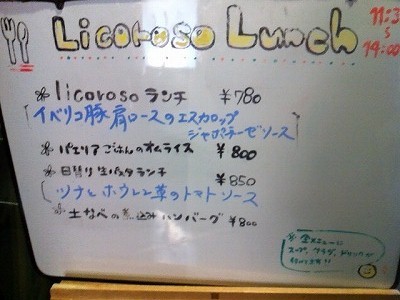 Licoroso Lunch
11:3
〜
14:00
※ licoroso ランチ ¥780
[イベリコ豚肩ロースのエスカロップ
ジャポネーゼソース]
※ パエリアごはんのオムライス ¥800
※ 日替り生パスタランチ ¥850
(ツナとホウレン草のトマトソース
※ 土なべの煮込みハンバーグ ¥800
※ 全メニューに
スープ、サラダ、ドリンクが